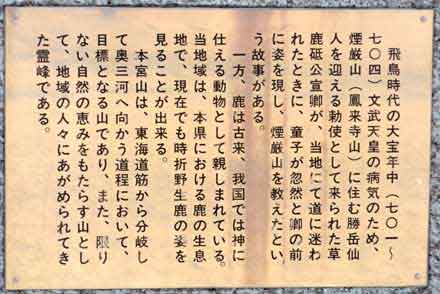 飛鳥時代の大宝年中（七〇一〜
七〇四）文武天皇の病気のため、
煙厳山（鳳来寺山）に住む勝岳仙
人を迎える勅使として来られた草
鹿砥公宣卿が、当地にて道に迷わ
れたときに、童子が忽然と卿の前
に姿を現し、煙厳山を教えたとい
う故事がある。
一方、鹿は古来、我国では神に
仕える動物として親しまれている。
当地域は、本県における鹿の生息
地で、現在でも時折野生鹿の姿を
見ることが出来る。
本宮山は、東海道筋から分岐し
て奥三河へ向かう道程において、
目標となる山であり、また、限り
ない自然の恵みをもたらす山とし
て、地域の人々にあがめられてき
た霊峰である。